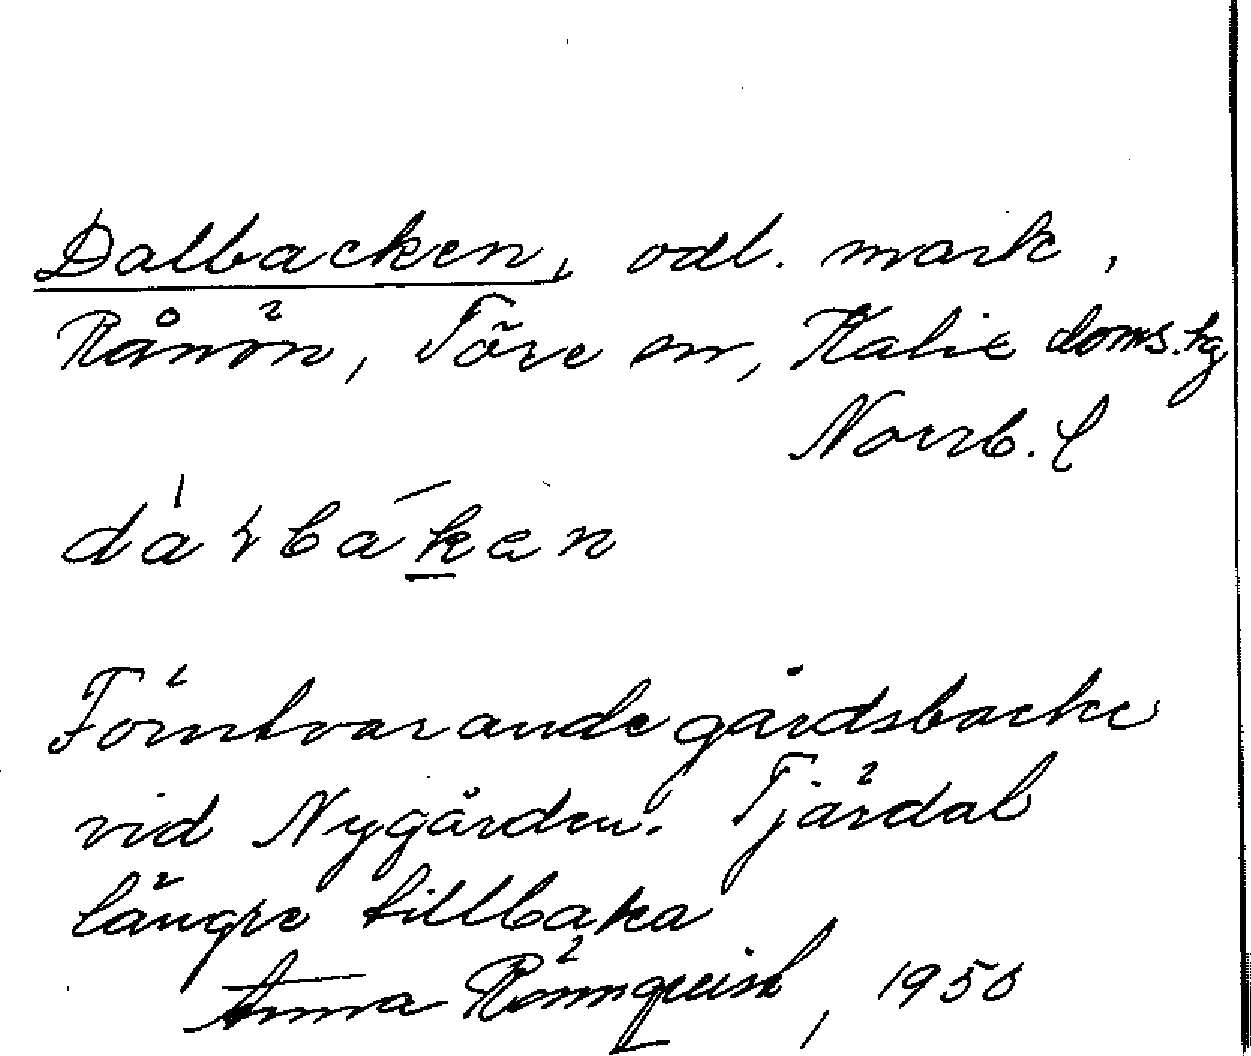 Dalbacken, odl. mark,
Rånön, Töre sn, Kalix doms.tg
Norrb. l
dàɽbákan
Förutvarande gårdsbacke
vid Nygården. Tjärdal
längre tillbaka
Anna Rönnquist, 1950